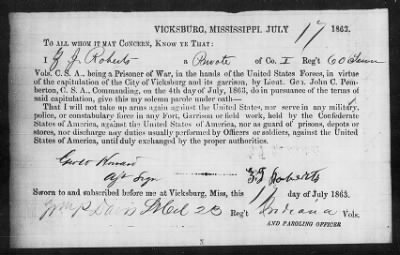 VICKSBURG, MISSISSIPPI, JULY 17 1863.
TO ALL WHOM IT MAY CONCERN, KNOW YE THAT:
I Z J Roberts a Private of Co. I Reg't 60 Tenn
Vols. C. S. A., being a Prisoner of War, in the hands of the United States Forces, in virtue
of the capitulation of the City of Vicksburg and its garrison, by Lieut. Gen. John C. Pem-
berton, C. S. A., Commanding, on the 4th day of July, 1863, do in pursuance of the terms of
said capitulation, give this my solemn parole under oath—
That I will not take up arms again against the United States, nor serve in any military,
police, or constabulary force in any Fort, Garrison or field work, held by the Confederate
States of America, against the United States of America, nor as guard of prisons, depots or
stores, nor discharge any duties usually performed by Officers or soldiers, against the United
States of America, until duly exchanged by the proper authorities.
Howard
Z J Roberts
Sworn to and subscribed before me at Vicksburg, Miss, this 17 day of July 1863.
Davis Lt Col 23 Reg't Indiana Vols.
AND PAROLING OFFICER